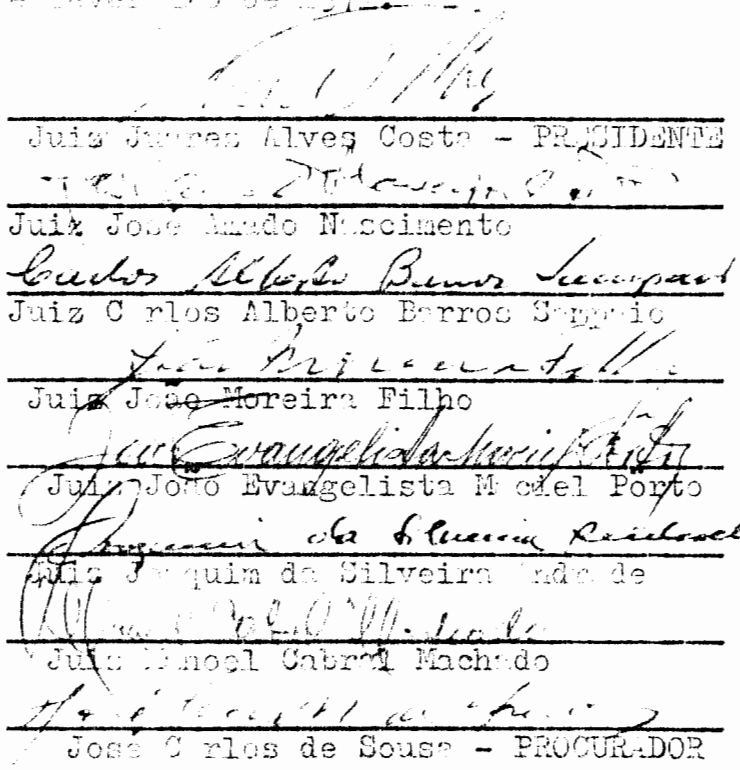 Juiz Juarez Alves Costa - PRESIDENTE
Juiz José Amado Nascimento
Carlos Alberto Barros Sampaio
Juiz Carlos Alberto Barros Sampaio
Juiz João Moreira Filho
João Evangelista Maciel Porto
Juiz João Evangelista Maciel Porto
Joaquim da Silveira Andrade
Juiz Joaquim da Silveira Andrade
Manoel Cabral Machado
Juiz Manoel Cabral Machado
José Carlos de Sousa - PROCURADOR